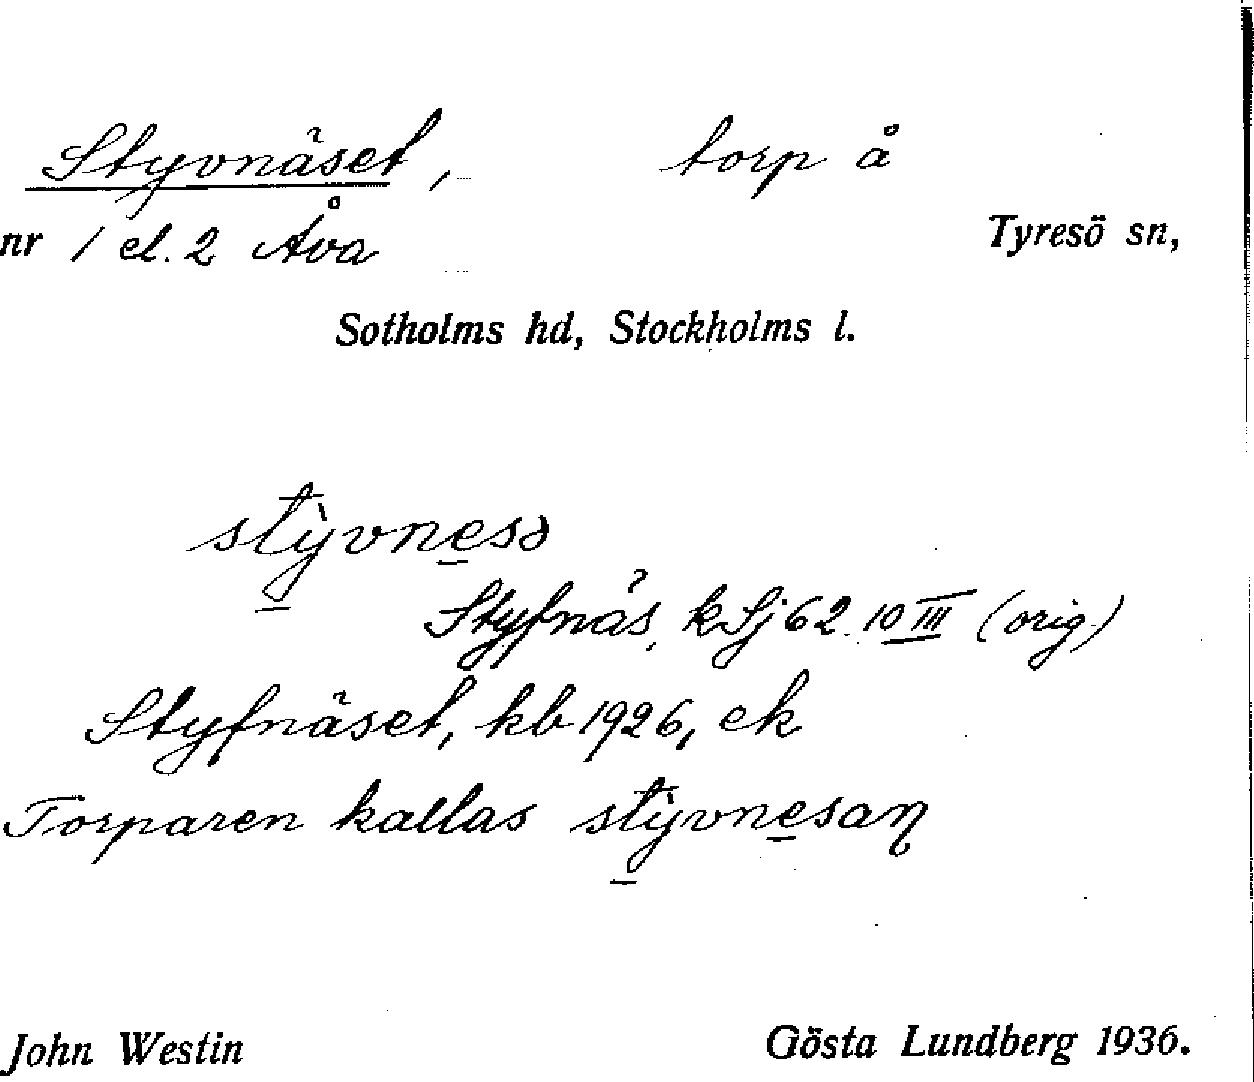 Styvnäset, torp å
nr 1 el. 2 Åva Tyresö sn,
Sotholms hd, Stockholms l.
stỳvnesə
Styfnäs, kSj 62 10 III (orig)
Styfnäset, kb 1926, ek
Torparen kallas stỳvnesaɳ
John Westin Gösta Lundberg 1936.